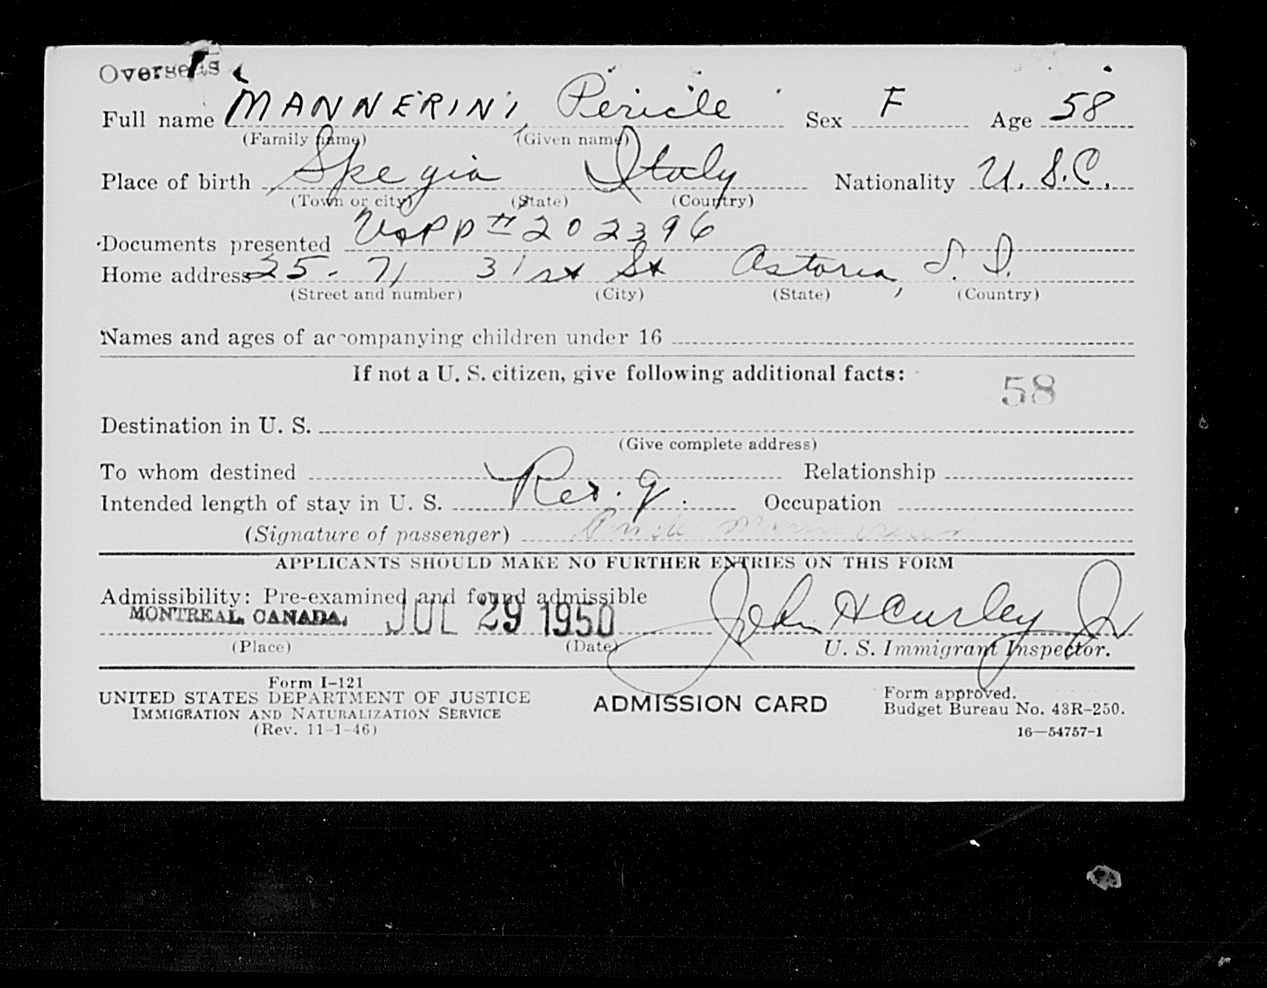 Overseas
Full name MANNERINI, Pericle Sex F Age 58
(Family name) (Given name)
Place of birth Spezia Italy Nationality U.S.C.
(Town or city) (State) (Country)
Documents presented USPP # 202396
Home address 25-71 31st St Astoria, L.I.
(Street and number) (City) (State) (Country)
Names and ages of accompanying children under 16
If not a U. S. citizen, give following additional facts:
58
Destination in U. S.
(Give complete address)
To whom destined Relationship
Intended length of stay in U. S. Res. Occupation
(Signature of passenger)
APPLICANTS SHOULD MAKE NO FURTHER ENTRIES ON THIS FORM
Admissibility: Pre-examined and found admissible
MONTREAL, CANADA. JUL 29 1950 John H Curley Jr
(Place) (Date) U. S. Immigrant Inspector.
Form I-121
UNITED STATES DEPARTMENT OF JUSTICE
IMMIGRATION AND NATURALIZATION SERVICE
(Rev. 11-1-46)
ADMISSION CARD
Form approved.
Budget Bureau No. 43R-250.
16—54757-1